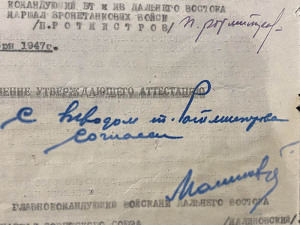 КОМАНДУЮЩИЙ БТ и МВ ДАЛЬНЕГО ВОСТОКА
МАРШАЛ БРОНЕТАНКОВЫХ ВОЙСК
/П. РОТМИСТРОВ/
П. Ротмистров
1947г.
УТВЕРЖДАЮЩЕГО АТТЕСТАЦИЮ
С выводом т. Ротмистрова
согласен
Малиновский
ГЛАВНОКОМАНДУЮЩИЙ ВОЙСКАМИ ДАЛЬНЕГО ВОСТОКА
МАРШАЛ СОВЕТСКОГО СОЮЗА /МАЛИНОВСКИЙ/